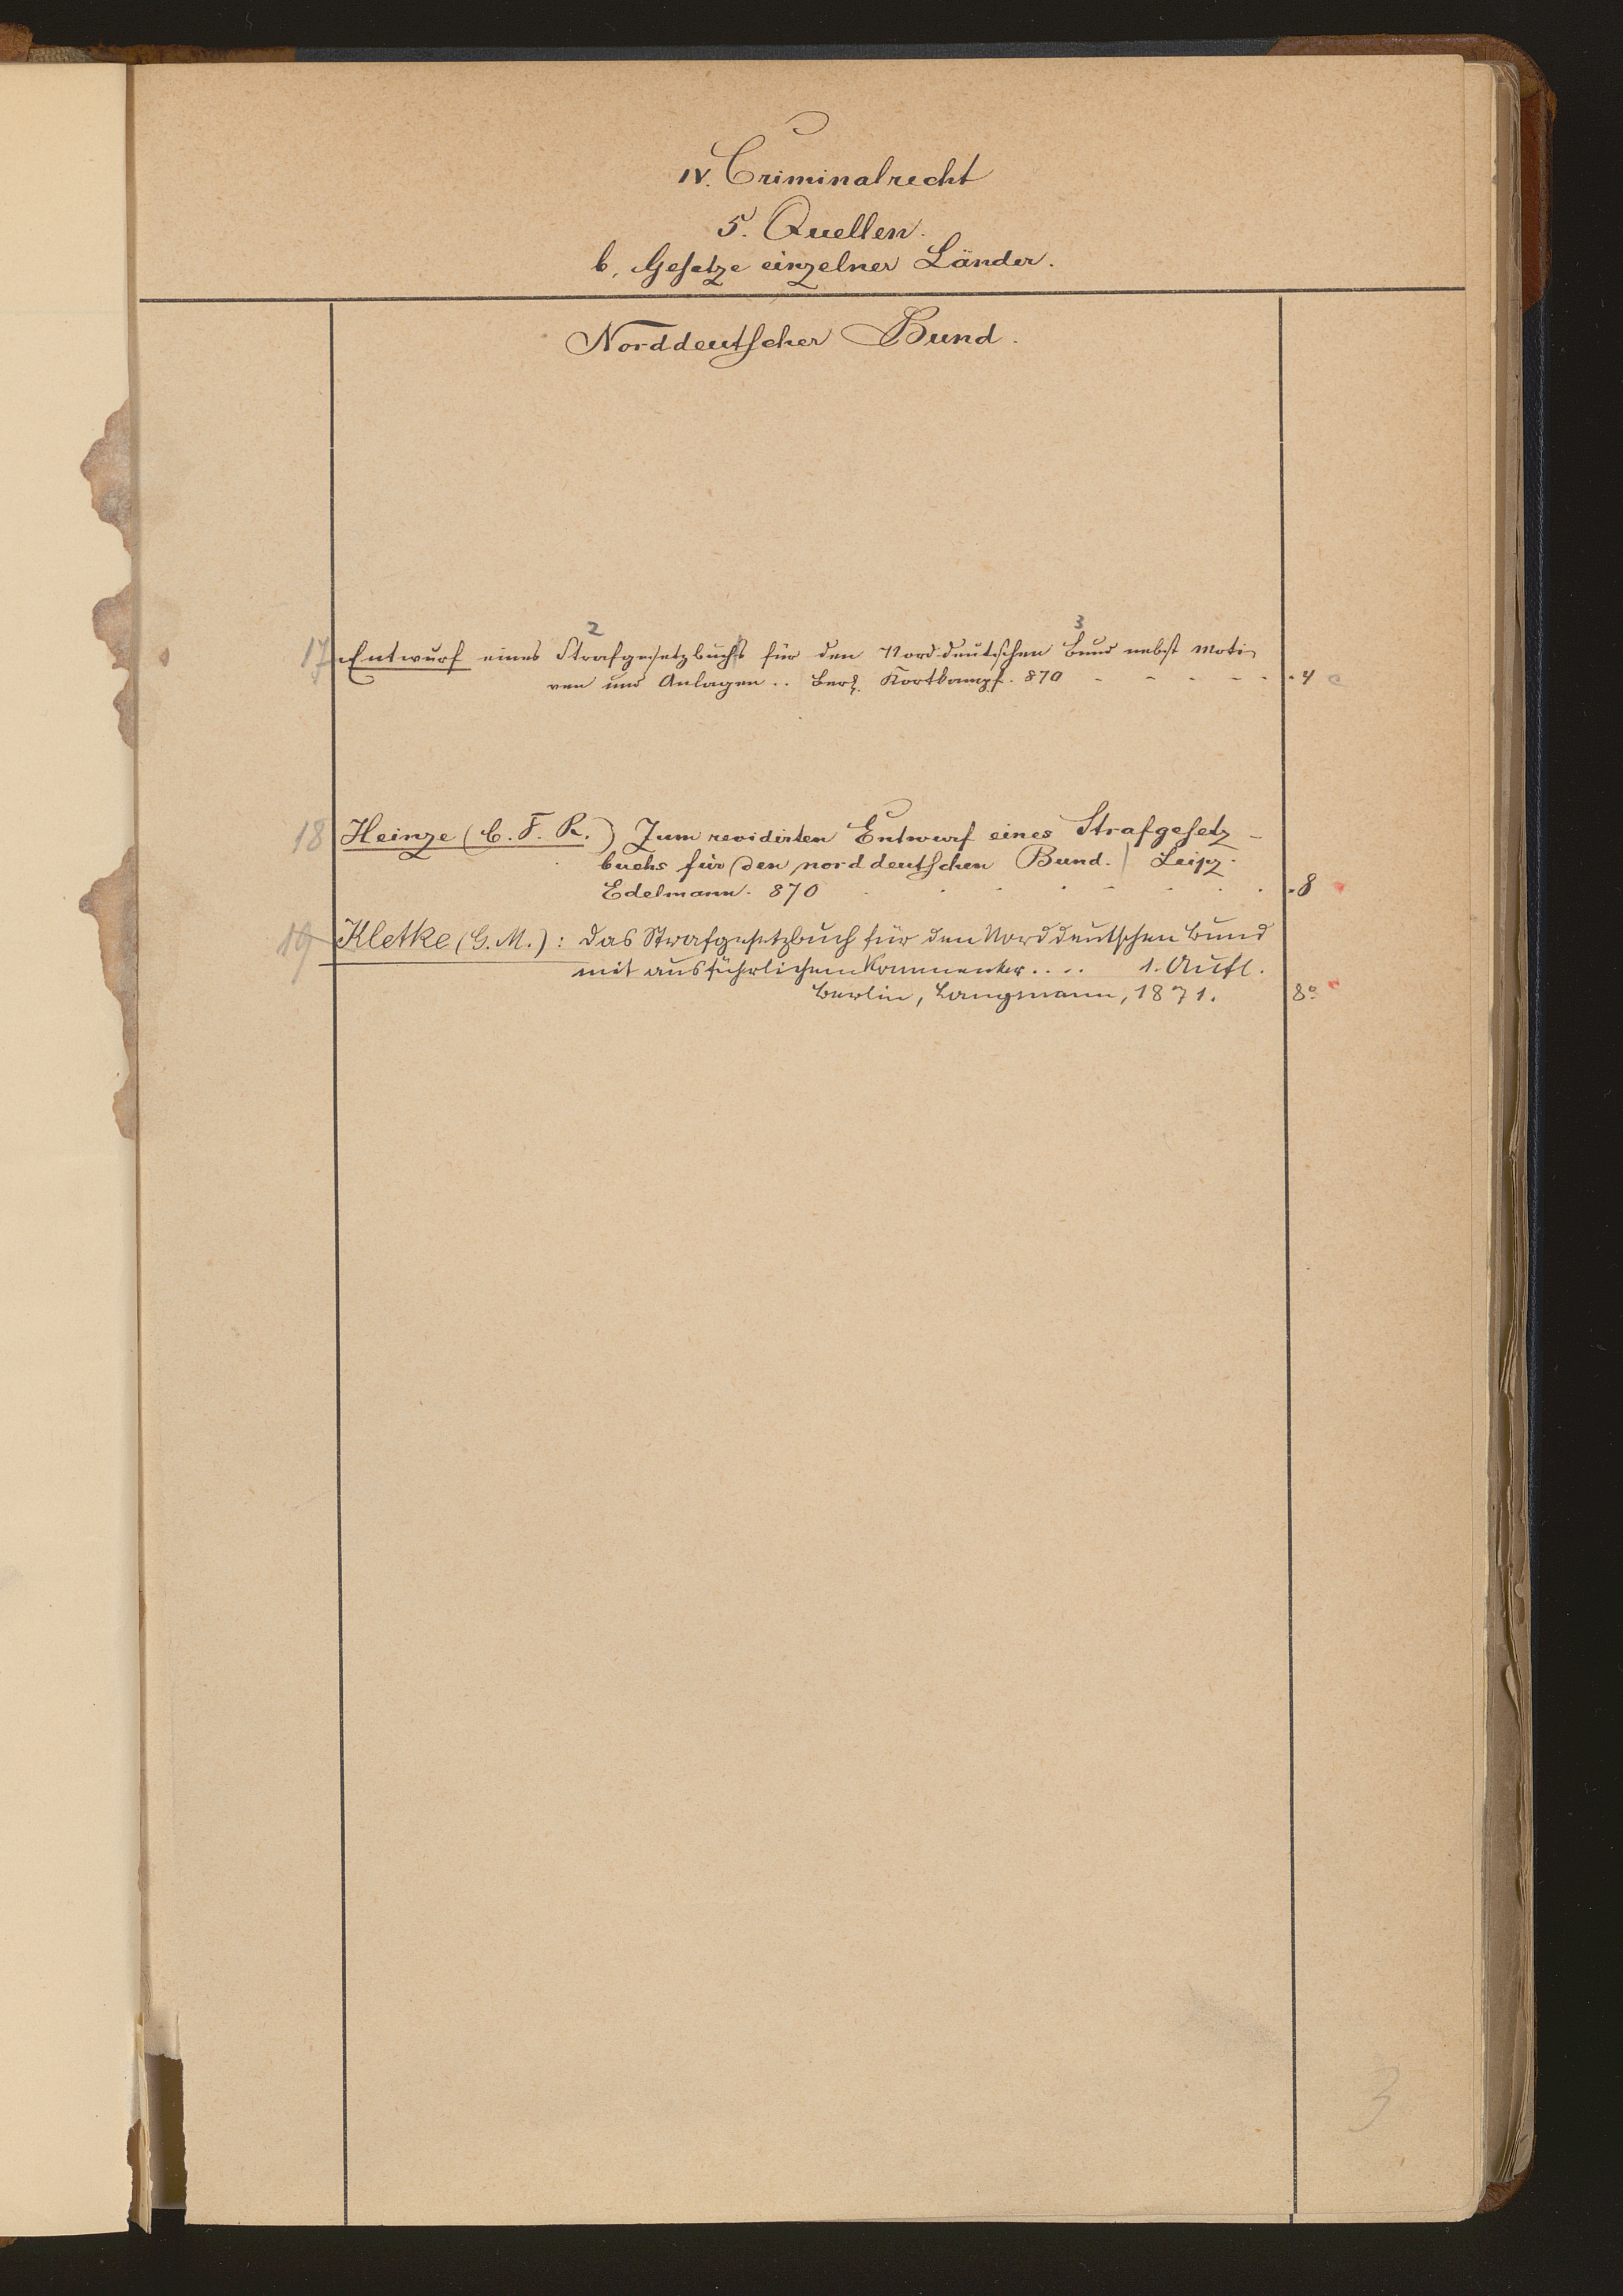 IV. Criminalrecht
5. Quellen.
b, Gesetze einzelner Länder.
Norddeutscher Bund.
2 3
17 Entwurf eines Strafgesetzbuchs für den Norddeutschen Bund nebst Moti-
ven und Anlagen .. Berl. Kortkampf. 870 - - - - - . 4
18 Heinze (C. F. R.) Zum revidirten Entwurf eines Strafgesetz-
buchs für den norddeutschen Bund. Leipz.
Edelmann. 870 . . . . . . . . 8
19 Kletke (G. M.): Das Strafgesetzbuch für den Norddeutschen Bund
mit ausführlichem Kommentar .... 1. Aufl.
Berlin, Langmann, 1871. 8º
3